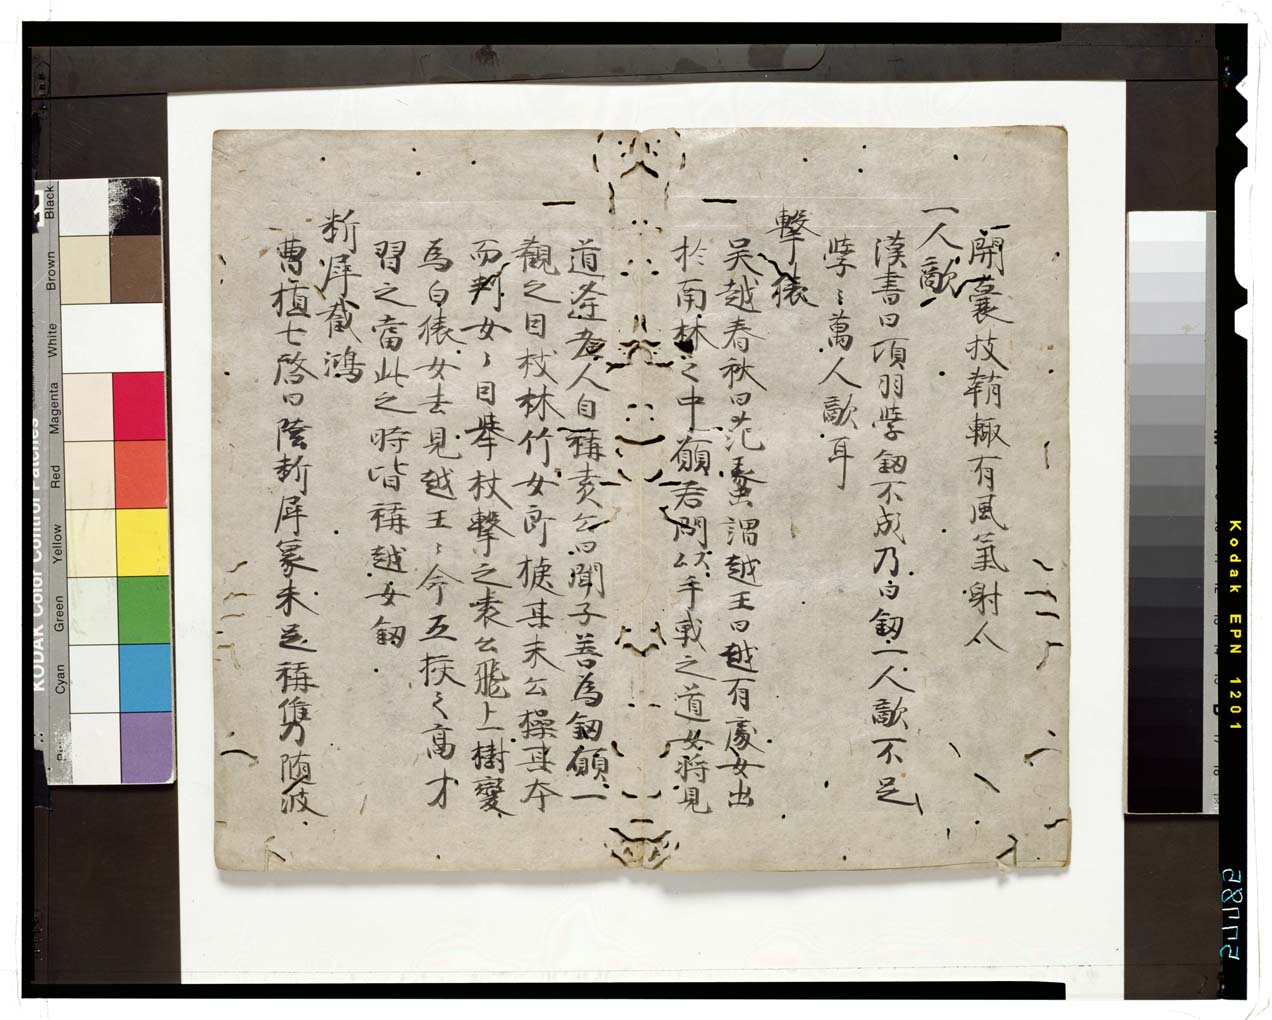 開囊技鞘輙有風氣射人
一人敵
漢書曰項羽學釼不成乃曰釼一人敵不足
學〻萬人敵耳
擊猿
吴越春秋曰范蠡謂越王曰越有處女出
於南林之中願君問以手戰之道女將見
道逢老人自稱袁公曰聞子善為釼願一
觀之目杖林竹女即捷其末公操其本
而刺女〻目舉杖擊之袁公飛上樹變
為白猿女去見越王〻命五挍之高才
習之當此之時皆稱越女釼
斬犀截鴻
曹植七啓曰陰斬犀象未足稱雋乃随波
Black
Brown
White
Magenta
Red
Yellow
Green
Cyan
KODAK Color Control Patches
Kodak EPN 1201